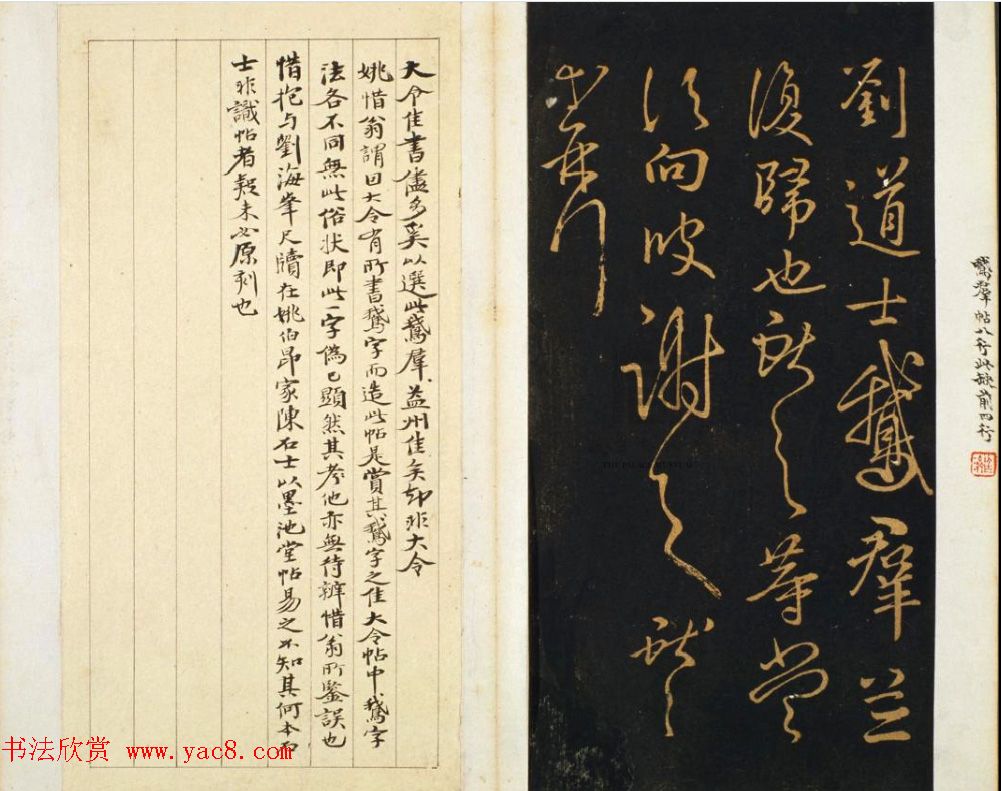 鵞群帖八行此缺前四行
劉道士鵝群並
復歸也獻之等當
須向彼謝之獻之
等再拜
大令佳書儘多奚以選此鵞群益州佳矣却非大令
姚惜翁謂因大令有所書鵞字而造此帖是賞其鵞字之佳大令帖中鵞字
法各不同無此俗状即此一字偽已顯然其他亦無待辨惜翁所鑒誤也
惜抱与劉海峯尺牘在姚伯昂家陳石士以墨池堂帖易之不知其何本石
士非識帖者疑未必原刻也
书法欣赏 www.yac8.com